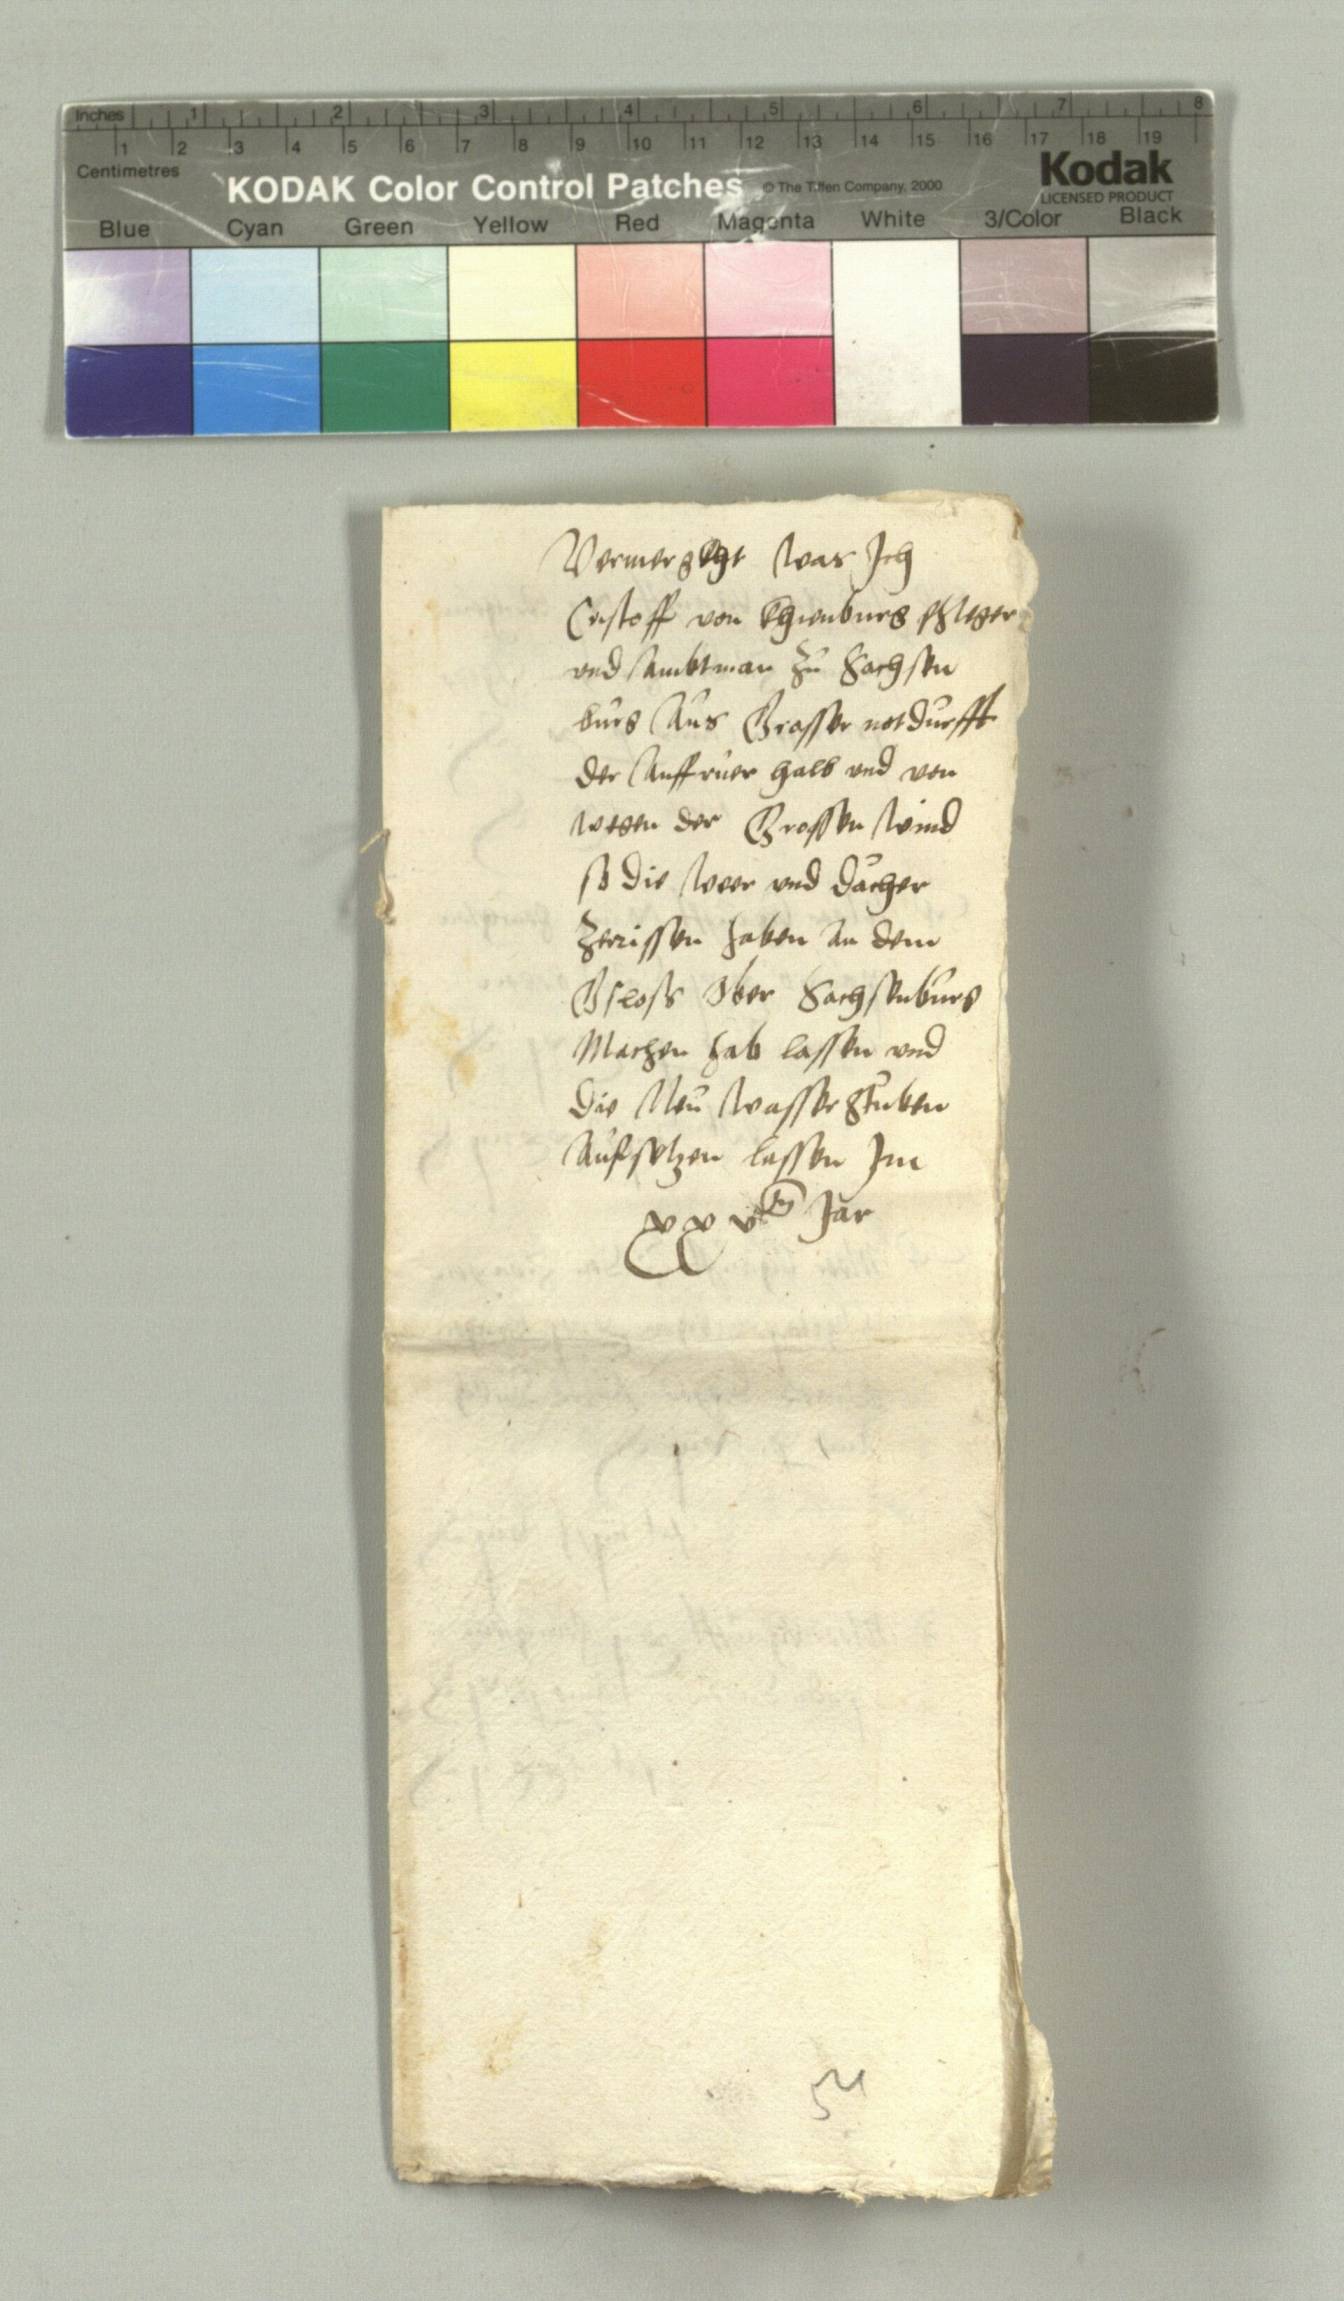 Inches 1 2 3 4 5 6 7 8
1 2 3 4 5 6 7 8 9 10 11 12 13 14 15 16 17 18 19
Centimetres
KODAK Color Control Patches © The Tiffen Company, 2000
Kodak
LICENSED PRODUCT
Blue Cyan Green Yellow Red Magenta White 3/Color Black
Vermergkht was Ich
Cristoff von Khienburg phleger
und Ambtman zu Sachsen
burg Aus Grosser notdurfft
der Auffruer halb und von
wegen der Grossen wind
so die weer und dächer
zerrissen haben an dem
Gsloss Ober Sachsenburg
Machen hab lassen und
die Neu wasserstuben
Aufsetzen lassen Im
xxv Jar